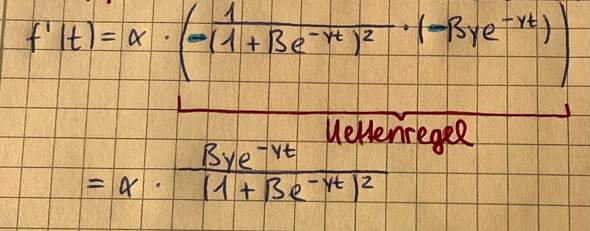 f'(t) = α · (- 1/(1 + Be^(-γt))² · (-Bγe^(-γt)))
Kettenregel
= α · Bγe^(-γt)/(1 + Be^(-γt))²